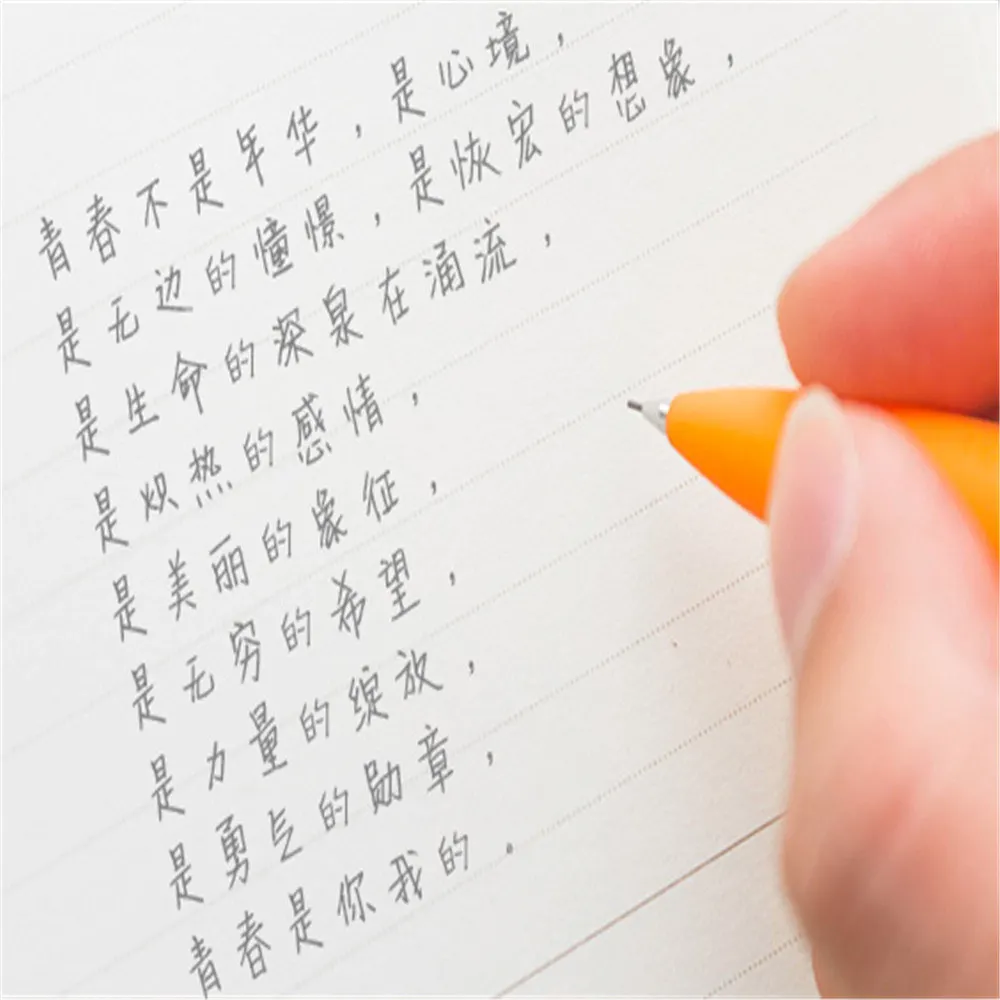 青春不是年华，是心境，
是无边的憧憬，是恢宏的想象，
是生命的深泉在涌流，
是炽热的感情，
是美丽的象征，
是无穷的希望，
是力量的绽放，
是勇气的勋章，
青春是你我的。